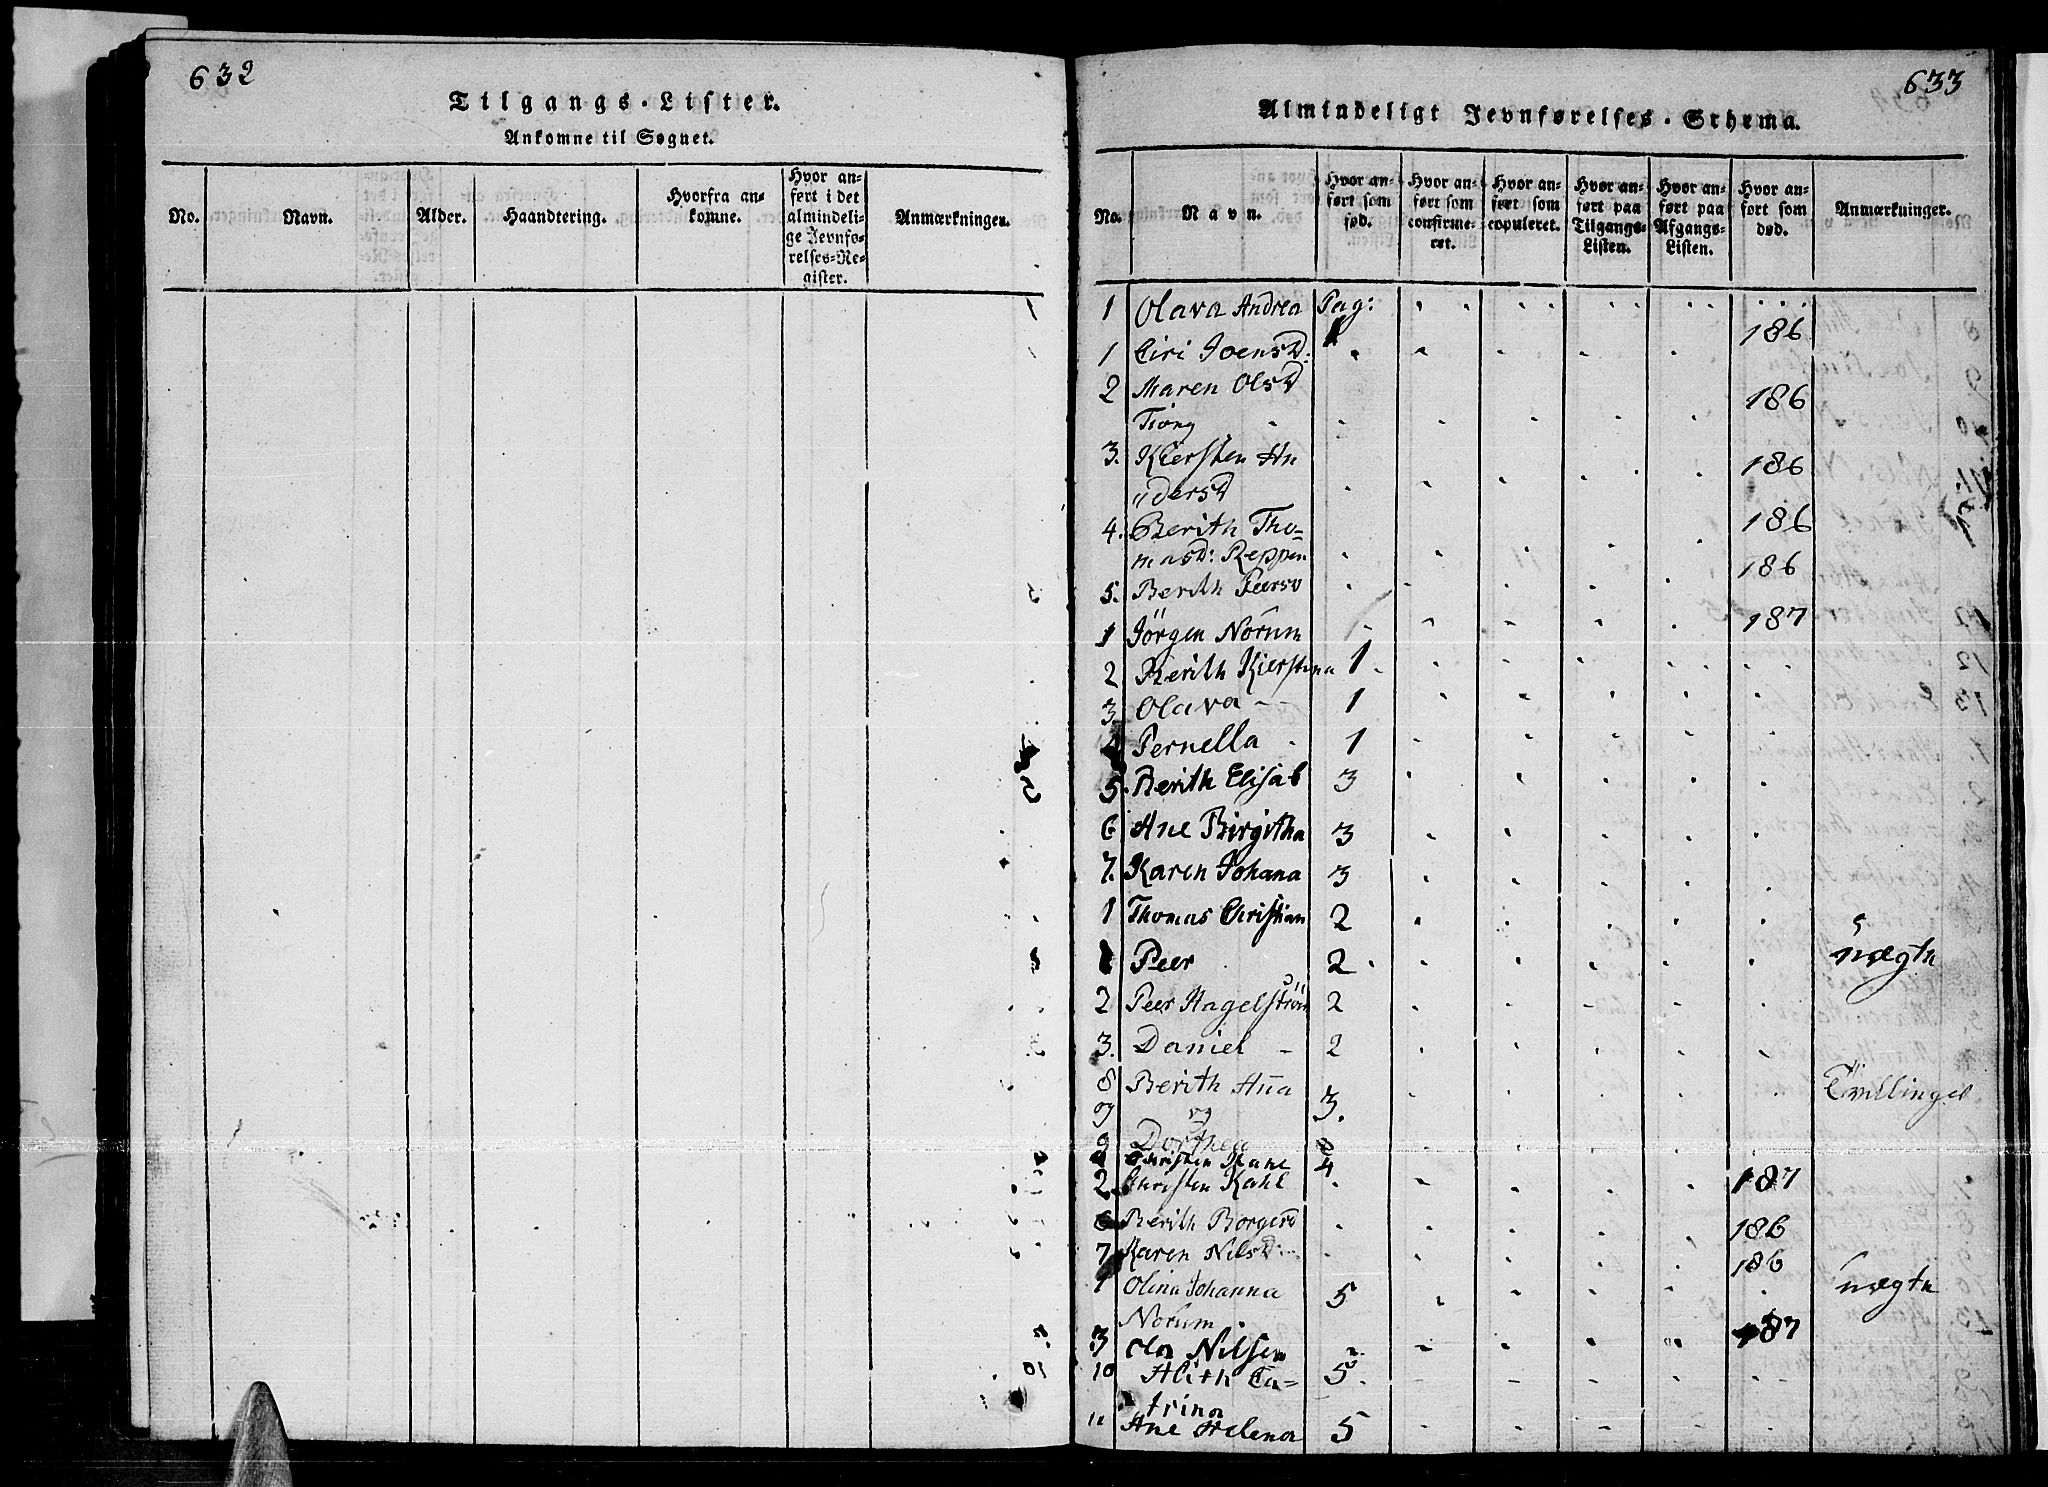 632
Tilgangs-Lister.
Ankomne til Sognet.
No. Navn. Alder. Haandtering. Hvorfra an=komne. Hvor an=ført i det almindeli=ge Jevnfø=relses=Re=gister. Anmærkninger.
633
Almindeligt Jevnførelses-Schema.
No. Navn. Hvor an=ført som fød. Hvor an=ført som confirme=ret. Hvor an=ført som copuleret. Hvor an=ført paa Tilgangs=Listen. Hvor an=ført paa Afgangs=Listen. Hvor an=ført som død. Anmærkninger.
1 Olava Andrea Pag: 1
1 Ciri Joensd: 186
2 Maren Olsd
Tiong 186
3. Kiersten An
"dersd 186
4. Berith Tho=
masd: Reppen 186
5. Berith Peersd 186
1 Jörgen Norum 187
2 Berith Kierstena 1
3 Olava 1
Pernella 1
5. Berith Elisab 3
6 Ane Birgitha 3
7. Karen Johana 3
1 Thomas Christian 2
1 Peer 2 uægte
2 Peer Hagelström 2
3. Daniel 2
8 Berith Aña 3. Tvillinger
og og
9 Dorthea
Christen Kahl 4
2. Christen Kahl 187
6 Berith Borgersd 186
7 Karen Nilsd: 186
1 Olina Johanna 5 uægte
Norum
3 Ola Nilsen 187
10 Alith Ca=
trina 5
11 Ane Helena 5